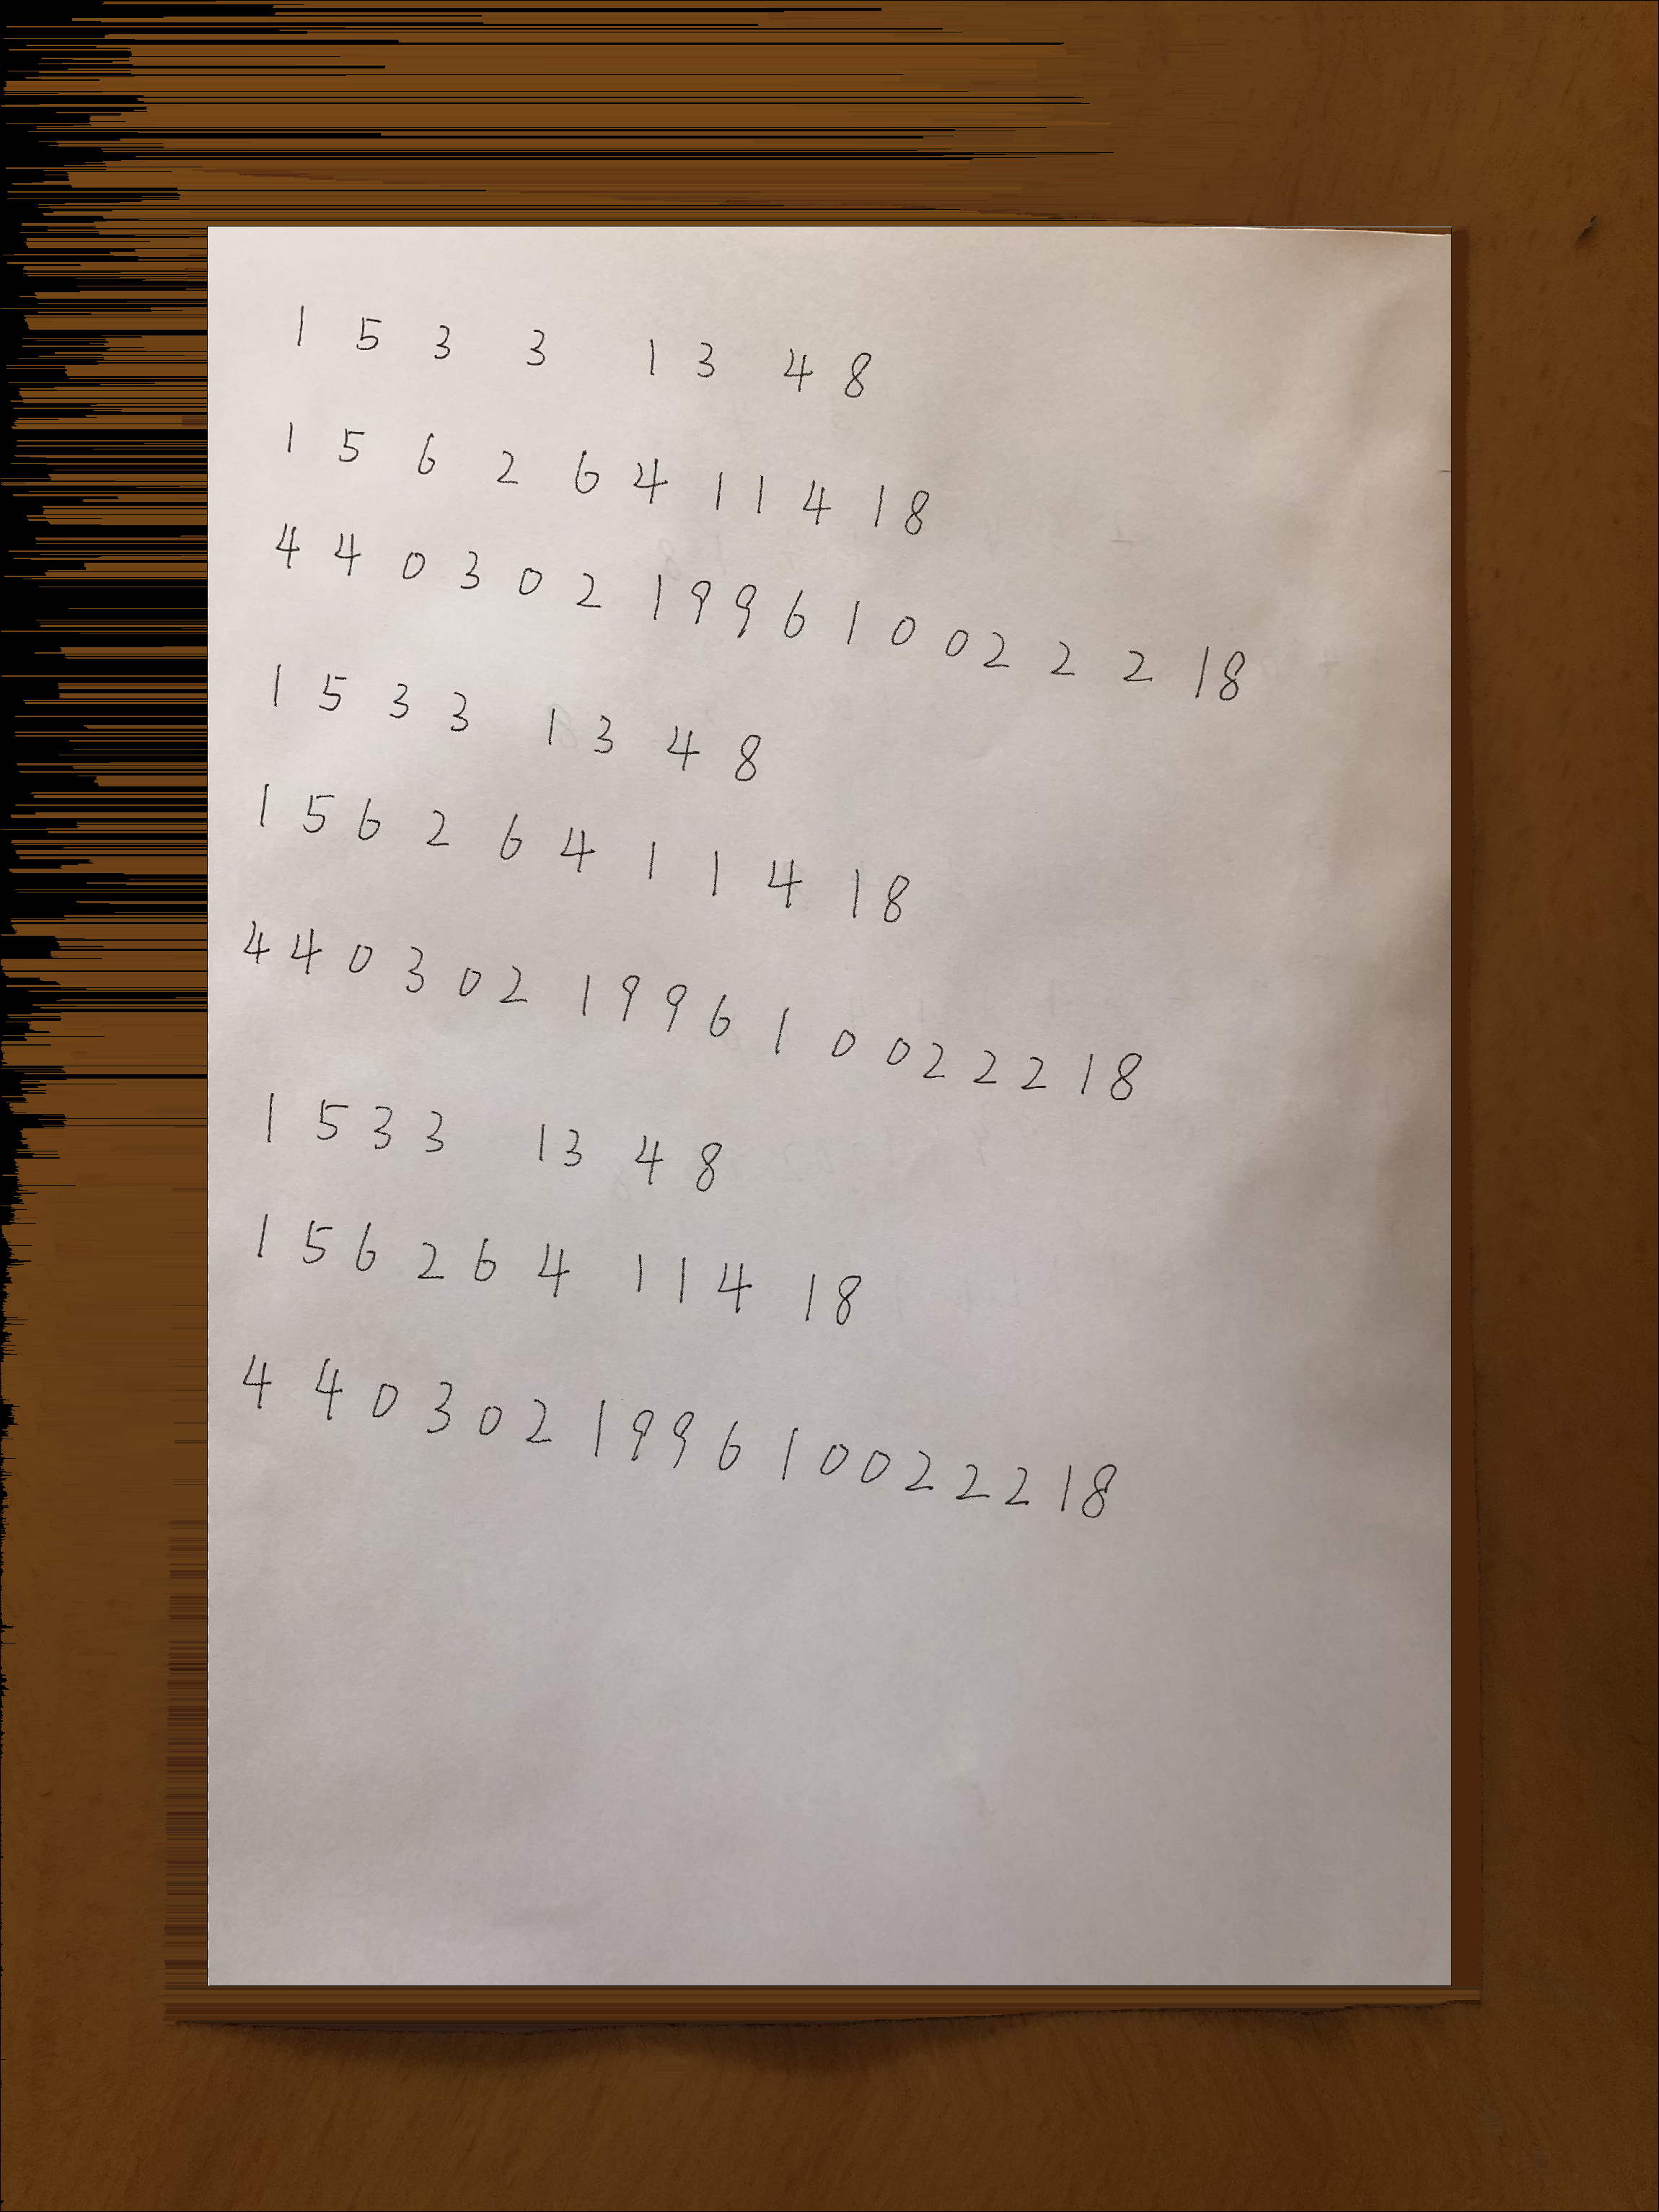 1 5 3 3 1 3 4 8
1 5 6 2 6 4 1 1 4 1 8
4 4 0 3 0 2 1 9 9 6 1 0 0 2 2 2 1 8
1 5 3 3 1 3 4 8
1 5 6 2 6 4 1 1 4 1 8
4 4 0 3 0 2 1 9 9 6 1 0 0 2 2 2 1 8
1 5 3 3 1 3 4 8
1 5 6 2 6 4 1 1 4 1 8
4 4 0 3 0 2 1 9 9 6 1 0 0 2 2 2 1 8